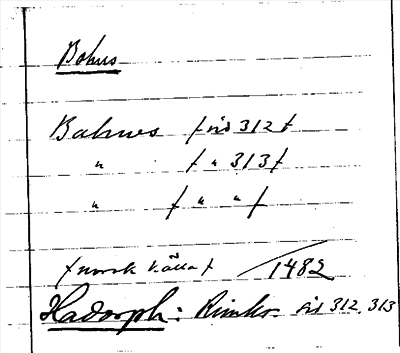 Bohus
Bahues f sid 312 f
" f " 313 f
" f " " f
f norsk källa f 1482
Hadorph: Rimkr. sid 312, 313